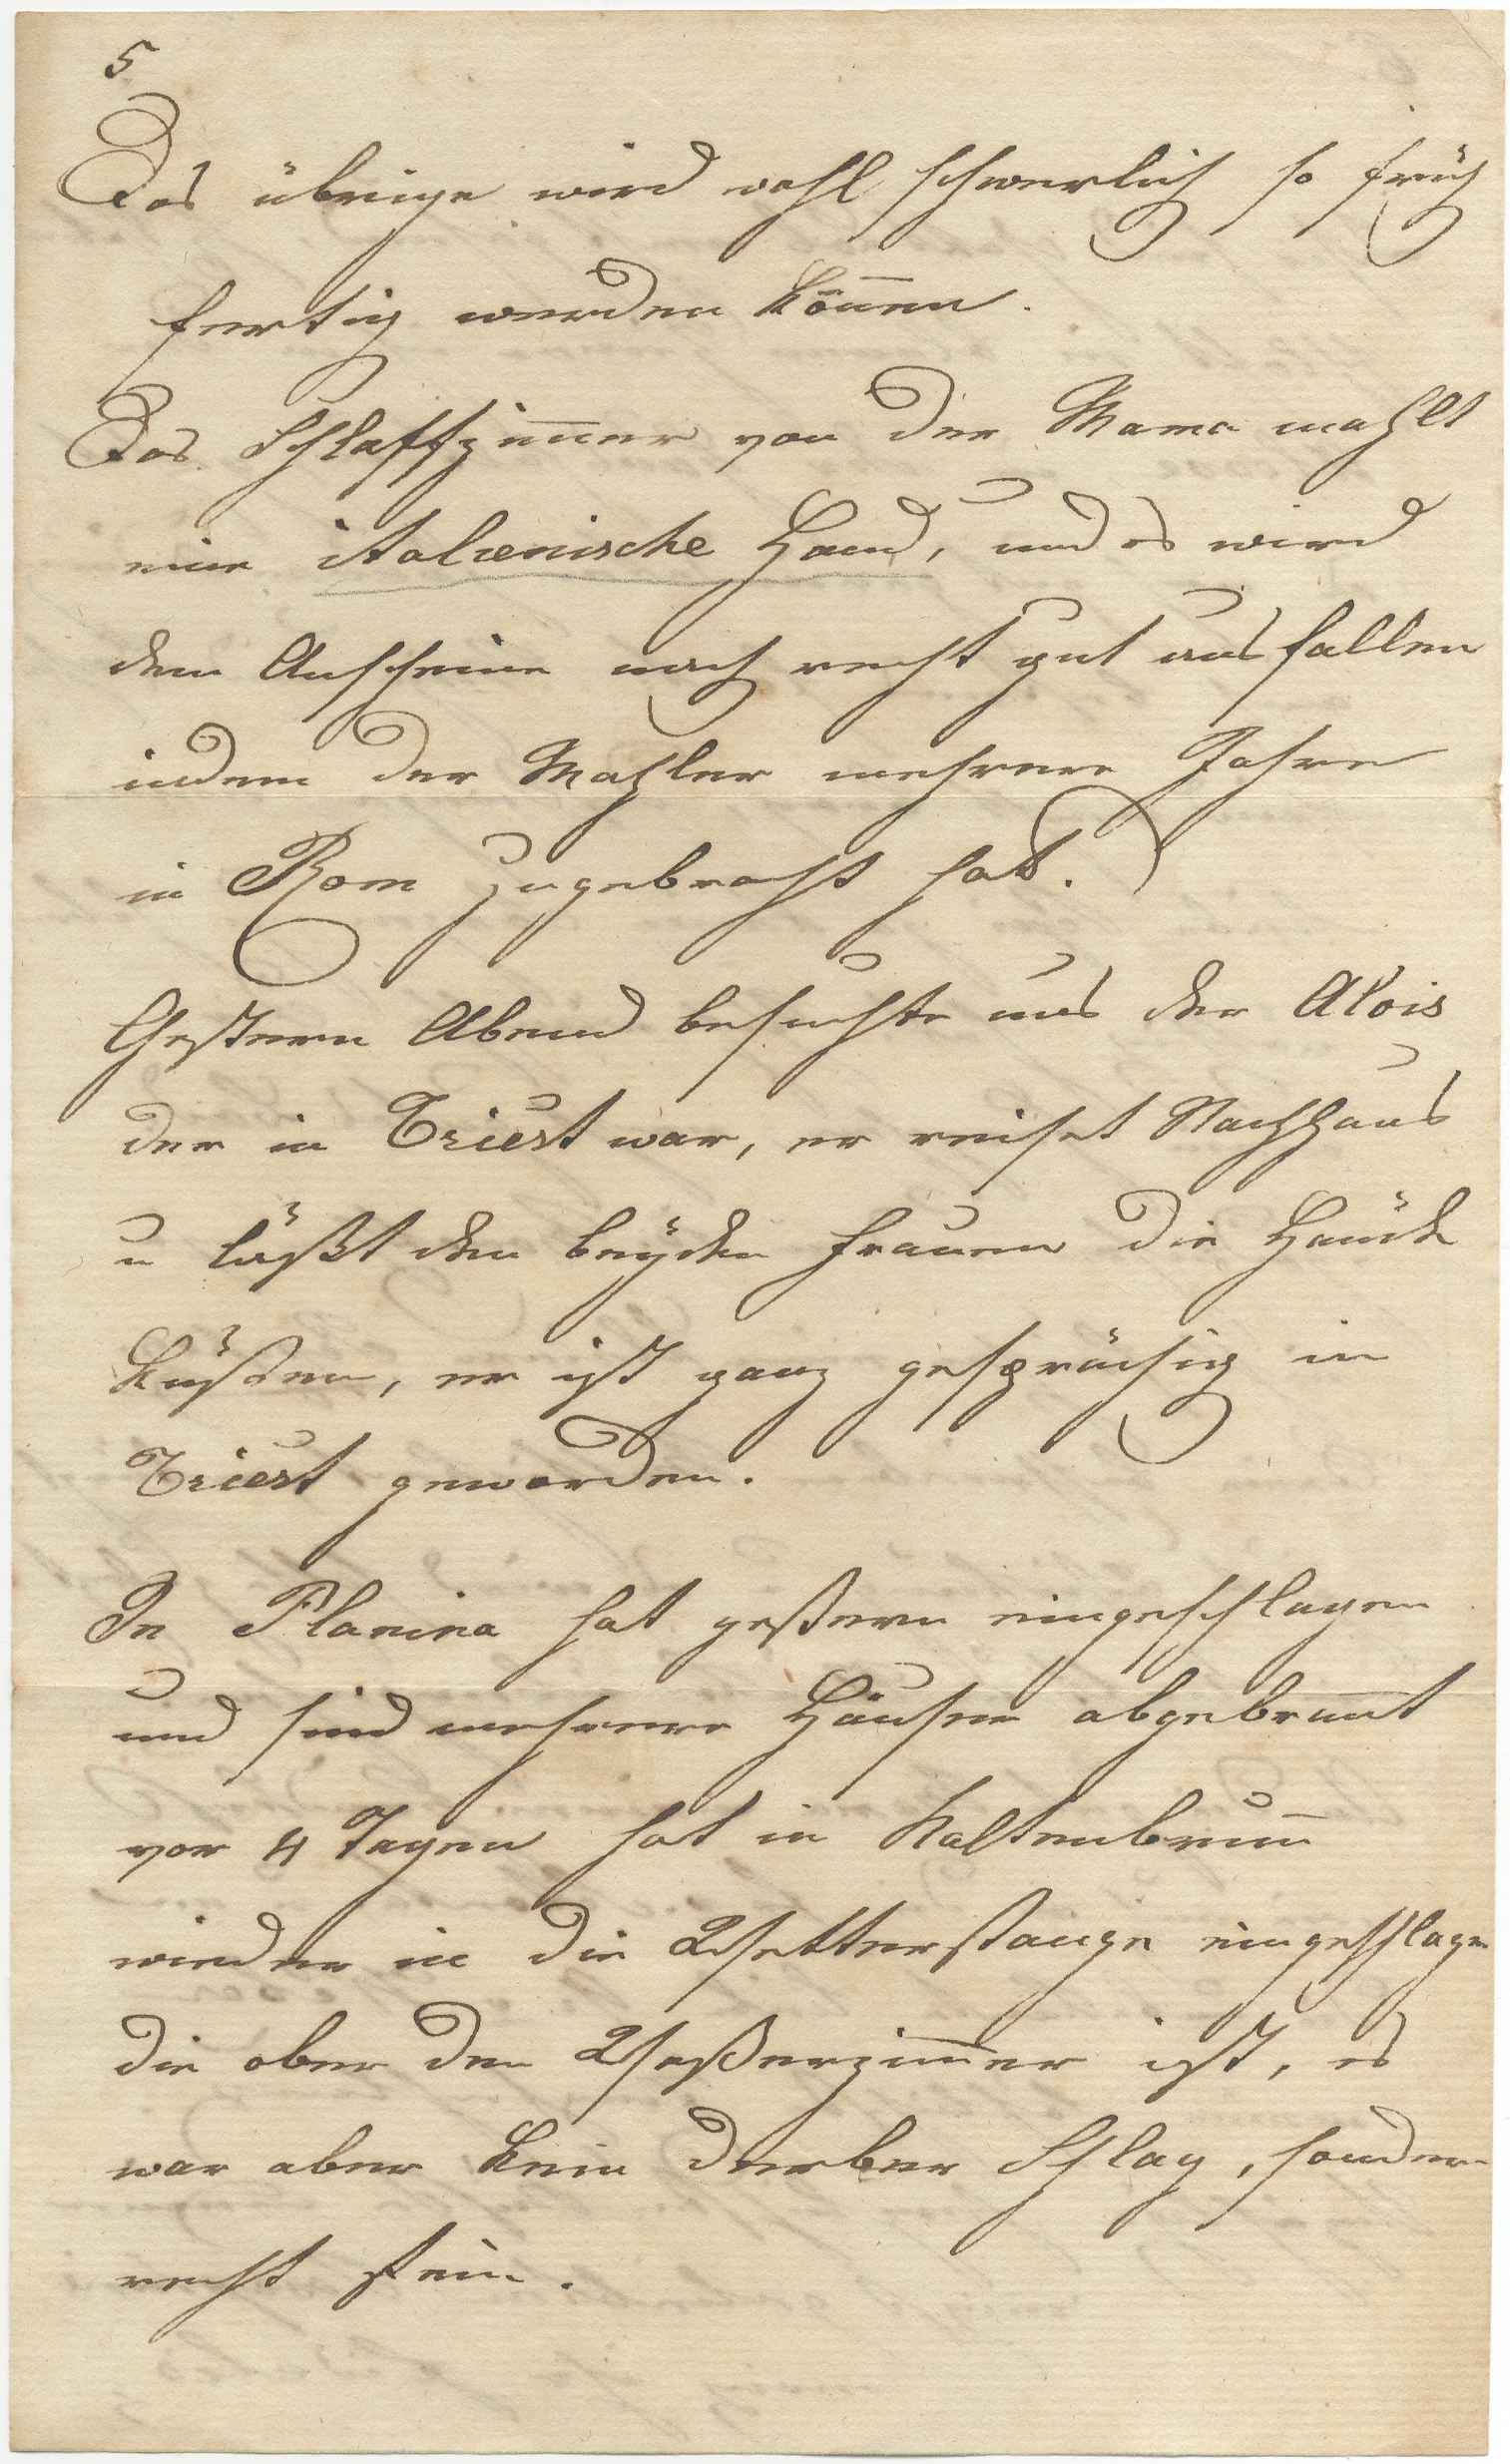 5
Das übrige wird wohl schwerlich so früh
fertig werden kön̄en.
Das Schlaffzim̄er von der Mama mahlt
eine italienische Hand, und es wird
dem Anscheine nach recht gut ausfallen
indem der Mahler mehrere Jahre
in Rom zugebracht hat.
Gestern Abend besuchte uns der Alois
der in Triest war, er reiset Nachhaus
u läßt den beyden Frauen die Hände
küßen, er ist ganz gesprächig in
Triest geworden.
In Planina hat gestern eingeschlagen
und sind mehrere Häuser abgebran̄t
vor 4 Tagen hat in Kaltenbrun̄
wieder in die Wetterstange eingeschlagen
die ober den Waßerzim̄er ist, es
war aber kein derber Schlag, sondern
recht fein.